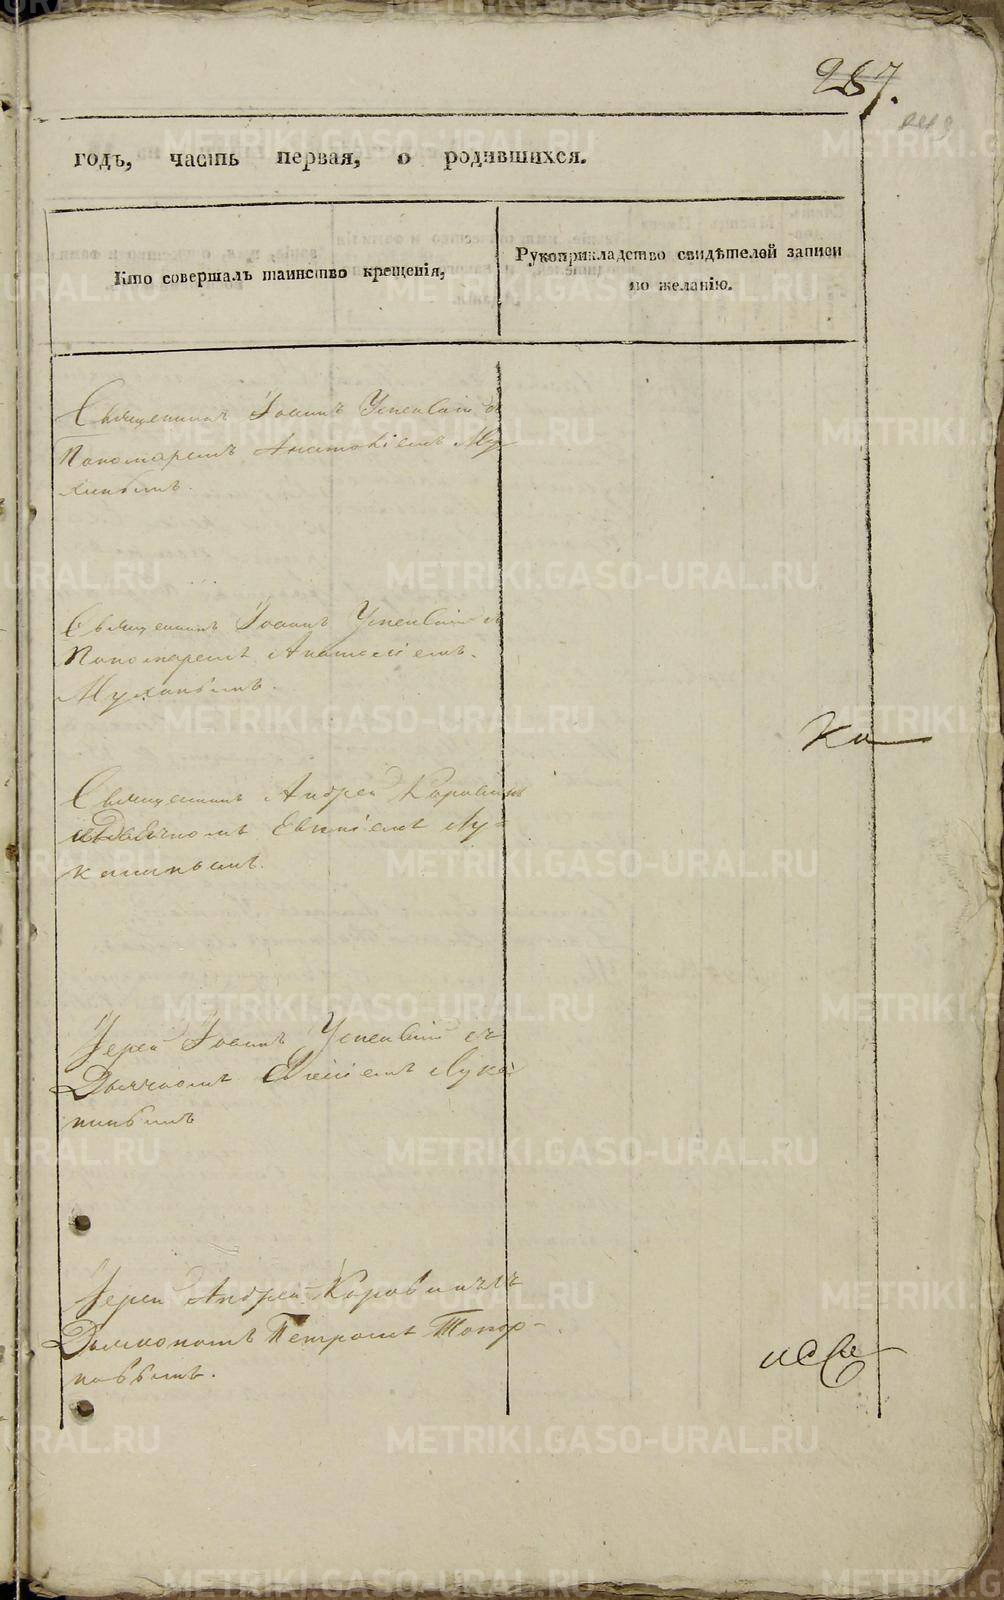 287.
годъ, часть первая, о родившихся.
Кто совершалъ таинство крещенія,
Рукоприкладство свидѣтелей записи
по желанію.
Священникъ Іоаннъ Успенскій съ
Пономаремъ Анатоліемъ Му
хинымъ.
Священникъ Іоаннъ Успенскій съ
Пономаремъ Анатоліемъ
Мухинымъ.
Священникъ Андрей Коровинъ
Лу-
кинымъ.
Іерей Іоаннъ Успенскій съ
Дьячкомъ
нинымъ
Іерей Андрей Коровинъ съ
Дьякономъ Петромъ Топор-
ковымъ.
METRIKI.GASO-URAL.RU